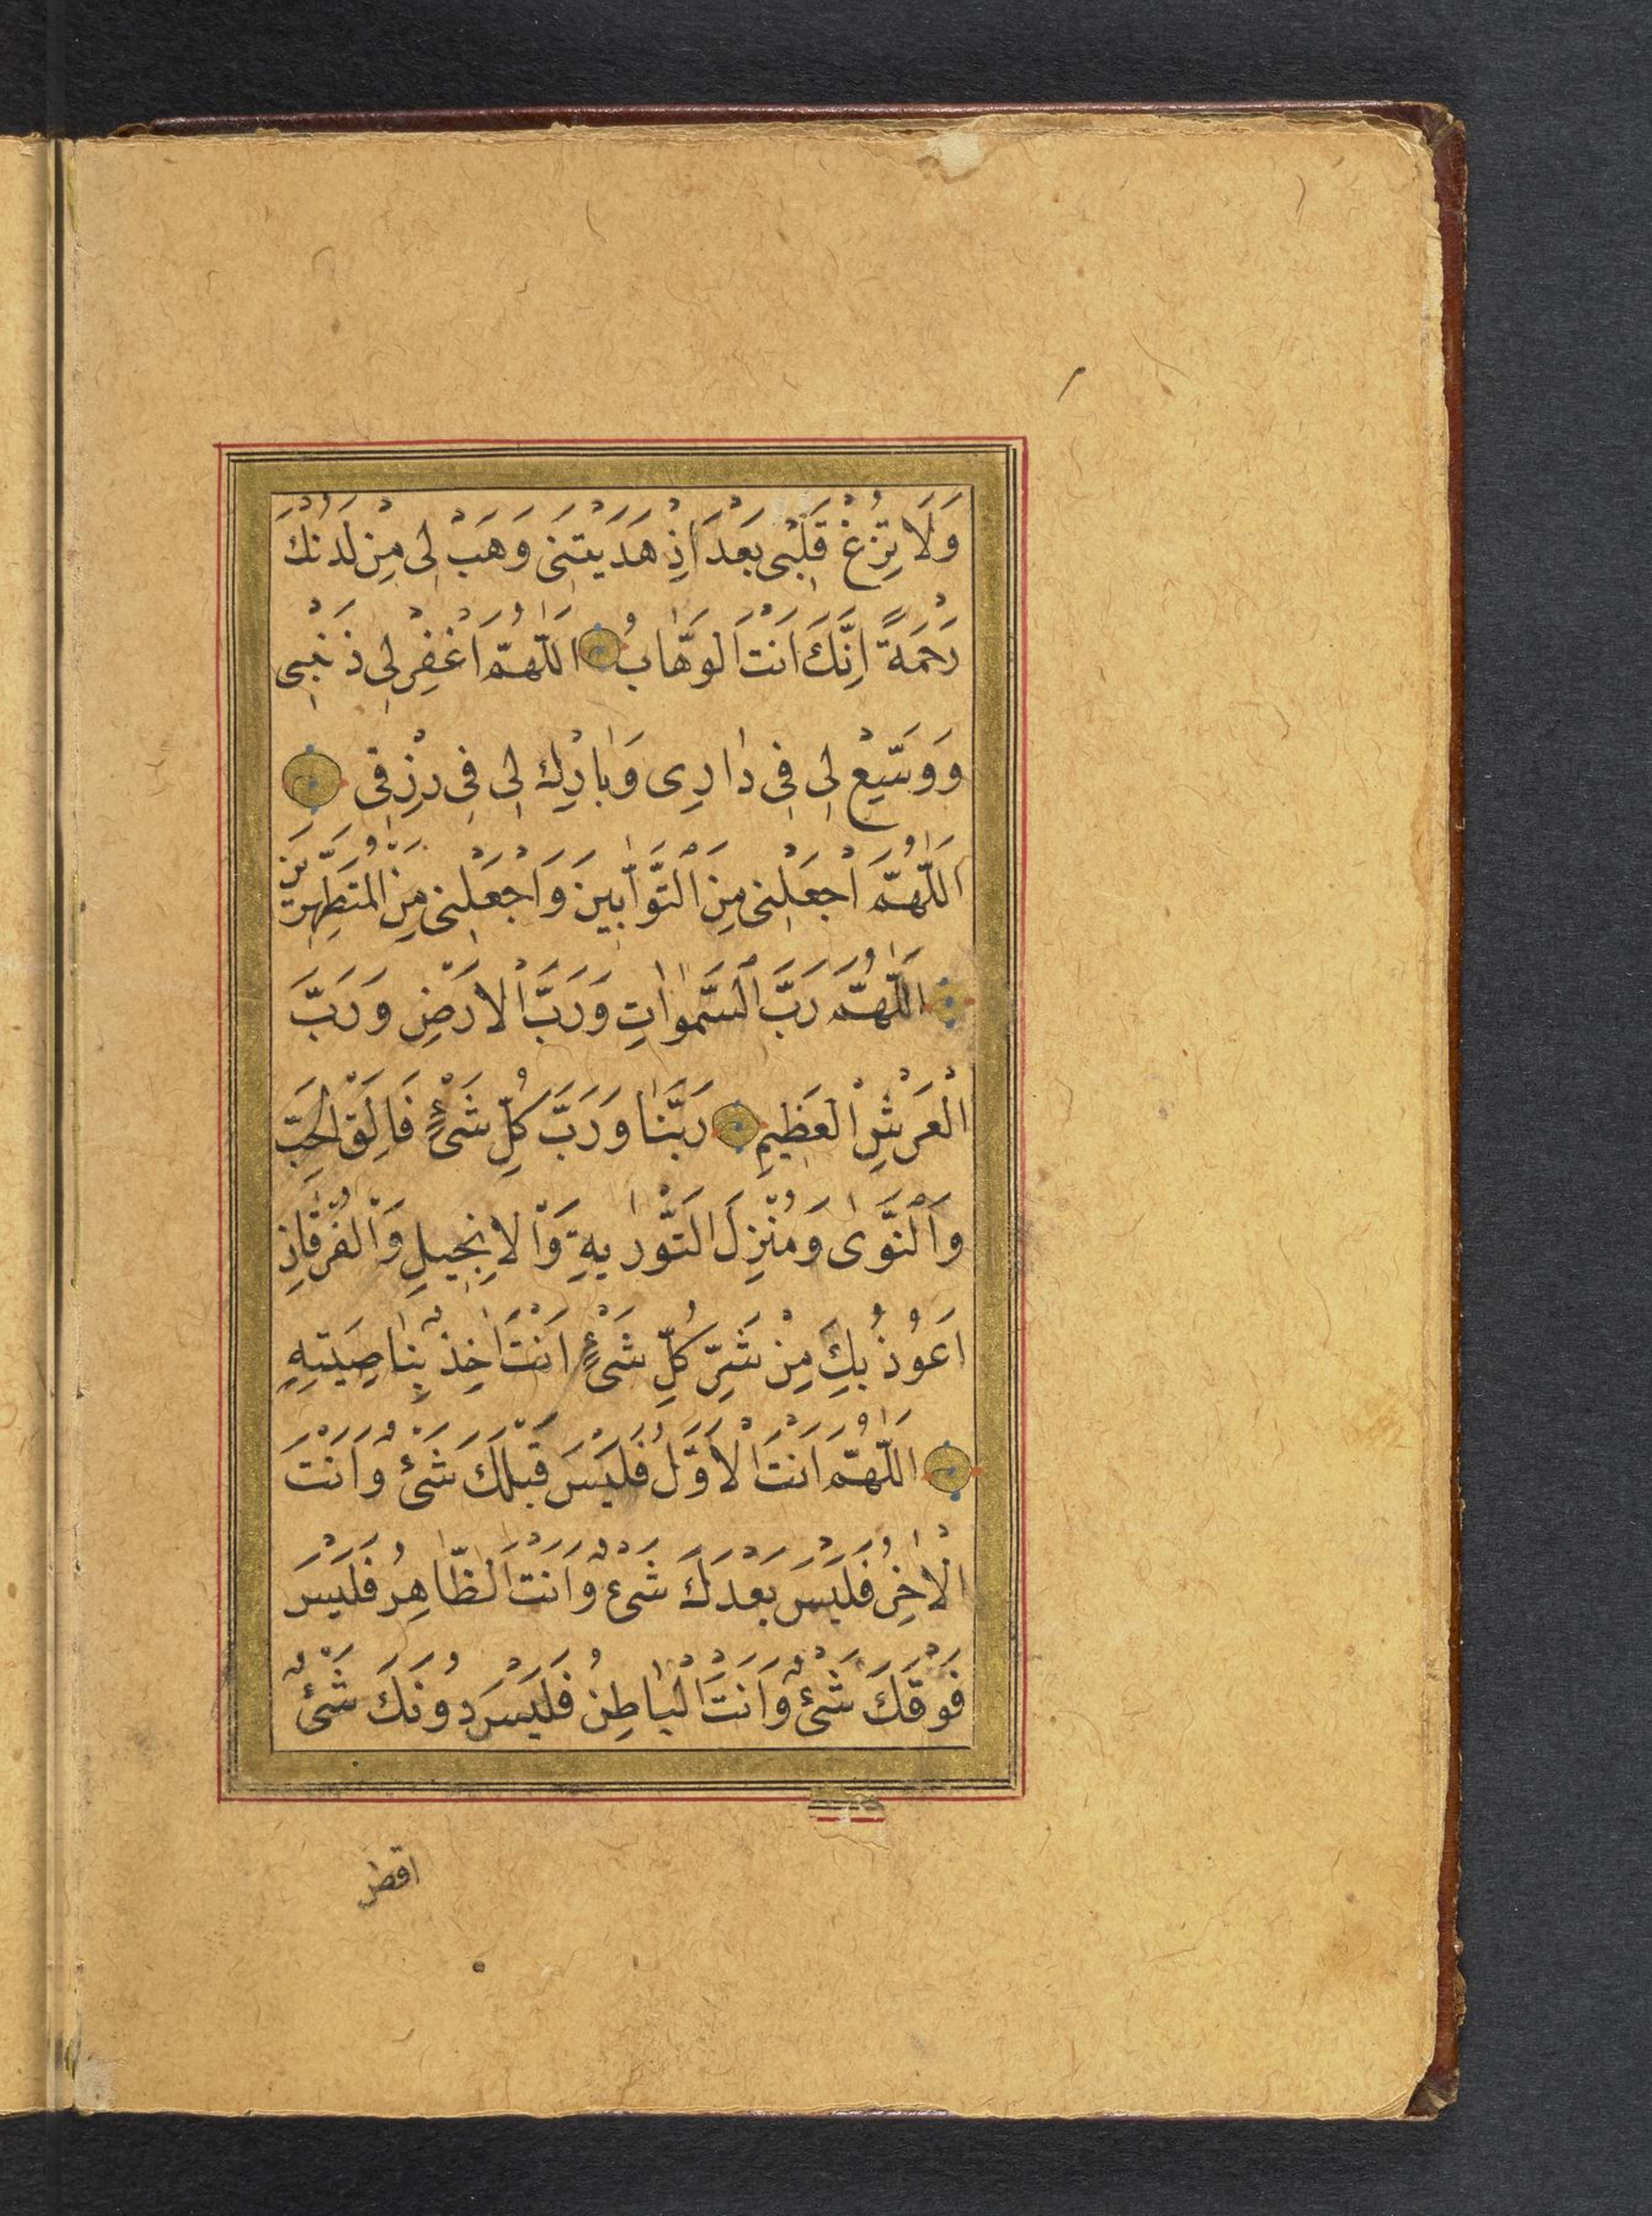 وَلَا تُزِغْ قَلْبِى بَعْدَ اِذْ هَدَيْتَنِى وَهَبْ لِى مِنْ لَدُنْكَ
رَحْمَةً اِنَّكَ اَنْتَ الْوَهَّابُ اَللّٰهُمَّ اغْفِرْ لِى ذَنْبِى
وَوَسِّعْ لِى فِى دَارِى وَبَارِكْ لِى فِى رِزْقِى
اَللّٰهُمَّ اجْعَلْنِى مِنَ التَّوَّابِينَ وَاجْعَلْنِى مِنَ الْمُتَطَهِّرِينَ
اَللّٰهُمَّ رَبَّ السَّمٰوَاتِ وَرَبَّ الْاَرْضِ وَرَبَّ
الْعَرْشِ الْعَظِيمِ رَبَّنَا وَرَبَّ كُلِّ شَىْءٍ فَالِقَ الْحَبِّ
وَالنَّوٰى وَمُنْزِلَ التَّوْرٰيةِ وَالْاِنْجِيلِ وَالْفُرْقَانِ
اَعُوذُ بِكَ مِنْ شَرِّ كُلِّ شَىْءٍ اَنْتَ اٰخِذٌ بِنَاصِيَتِهِ
اَللّٰهُمَّ اَنْتَ الْاَوَّلُ فَلَيْسَ قَبْلَكَ شَىْءٌ وَاَنْتَ
الْاٰخِرُ فَلَيْسَ بَعْدَكَ شَىْءٌ وَاَنْتَ الظَّاهِرُ فَلَيْسَ
فَوْقَكَ شَىْءٌ وَاَنْتَ الْبَاطِنُ فَلَيْسَ دُونَكَ شَىْءٌ
اقض